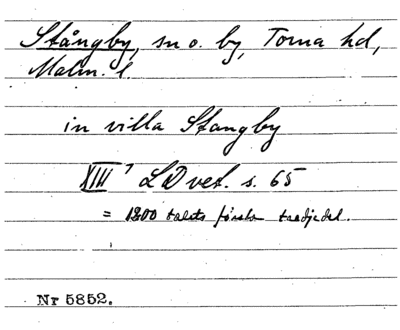 Stångby, sn o. by, Torna hd,
Malm. l.
in villa Stangby
XIII¹ LD vet. s. 65
= 1200 talets första tredjedel.
Nr 5852.